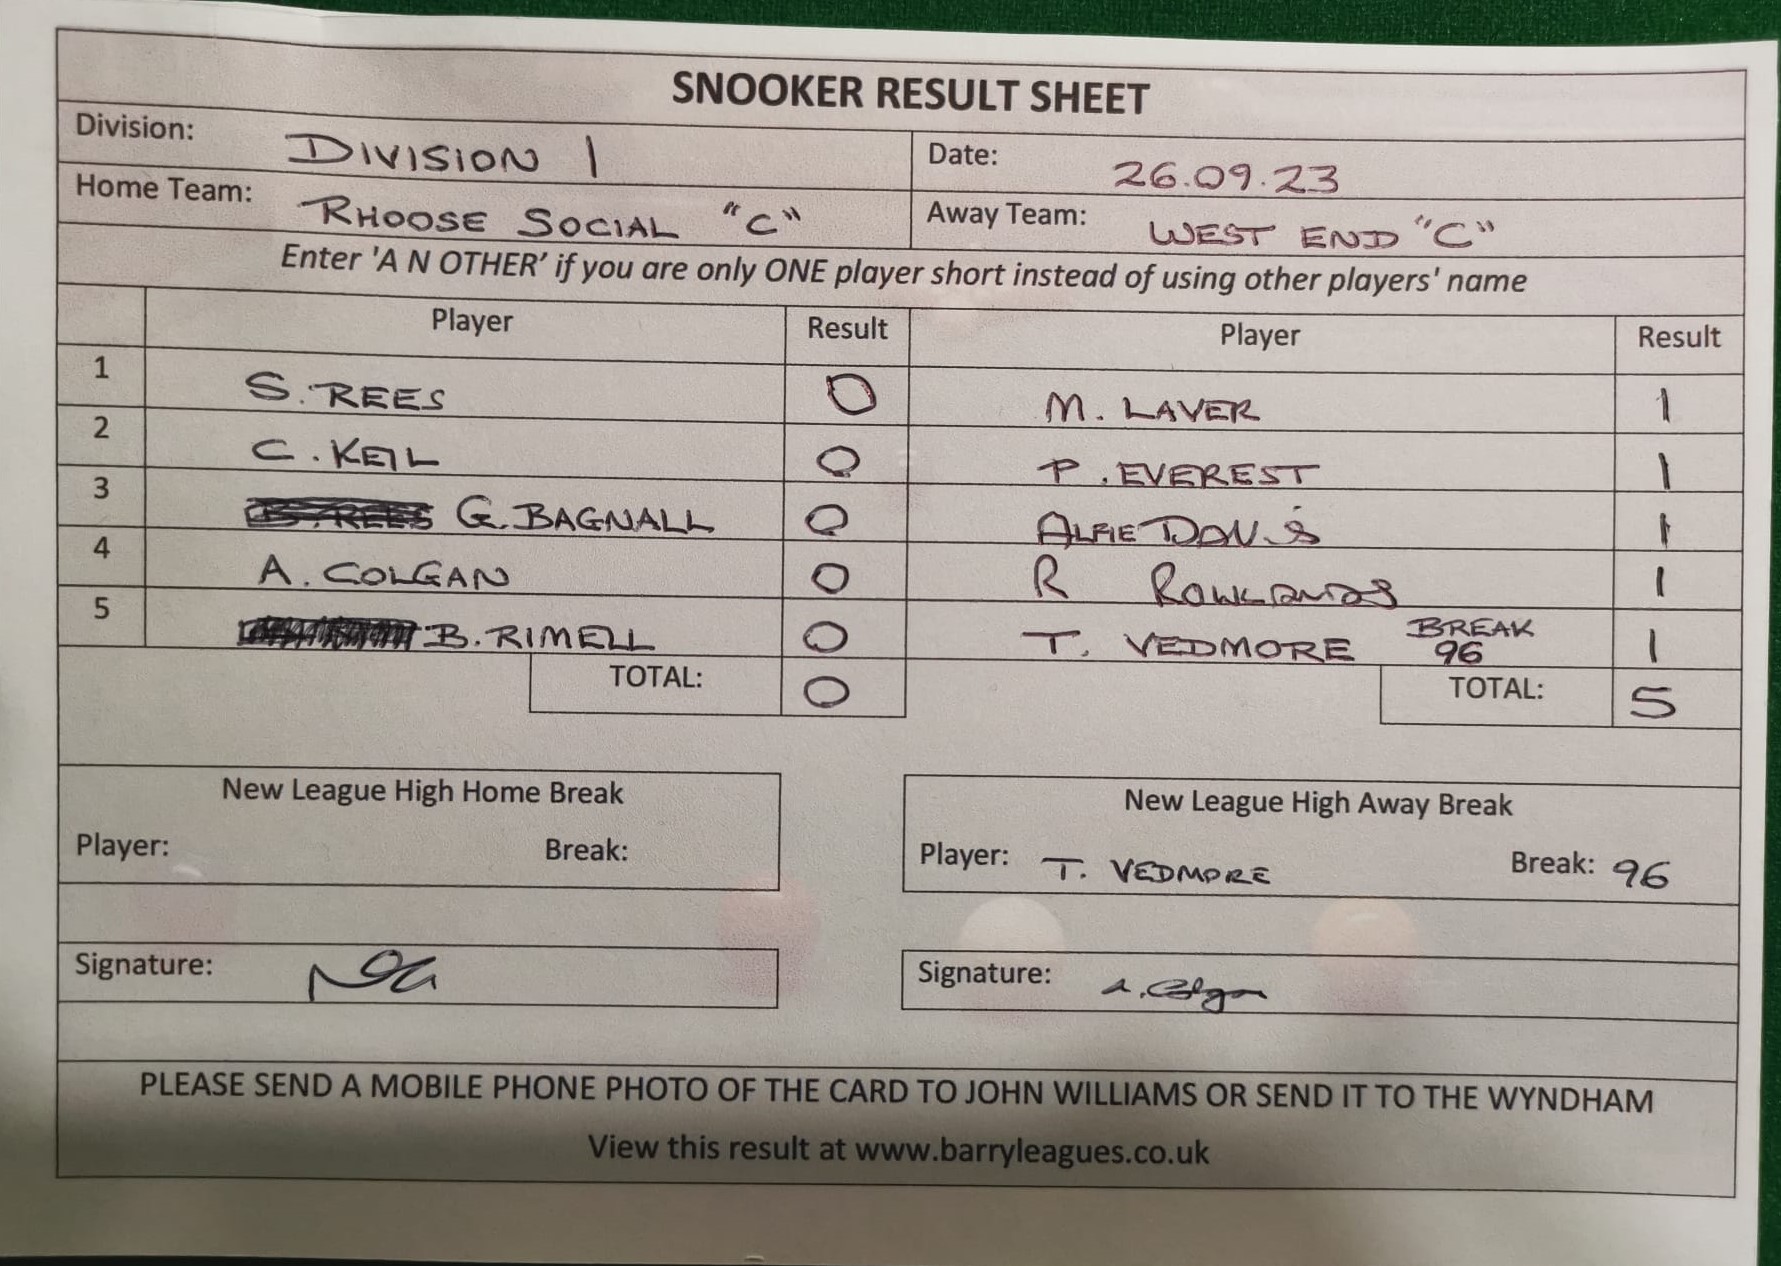 SNOOKER RESULT SHEET
Division: DIVISION 1 Date: 26.09.23
Home Team: RHOOSE SOCIAL "C" Away Team: WEST END "C"
Enter 'A N OTHER' if you are only ONE player short instead of using other players' name
Player Result Player Result
1 S. REES 0 M. LAVER 1
2 C. KEIL 0 P. EVEREST 1
3 G. BAGNALL 0 ALFIE DAVIS 1
4 A. COLGAN 0 R ROWLANDS 1
5 B. RIMELL 0 T. VEDMORE BREAK 96 1
TOTAL: 0 TOTAL: 5
New League High Home Break New League High Away Break
Player: Break: Player: T. VEDMORE Break: 96
Signature: Signature: A. Colgan
PLEASE SEND A MOBILE PHONE PHOTO OF THE CARD TO JOHN WILLIAMS OR SEND IT TO THE WYNDHAM
View this result at www.barryleagues.co.uk